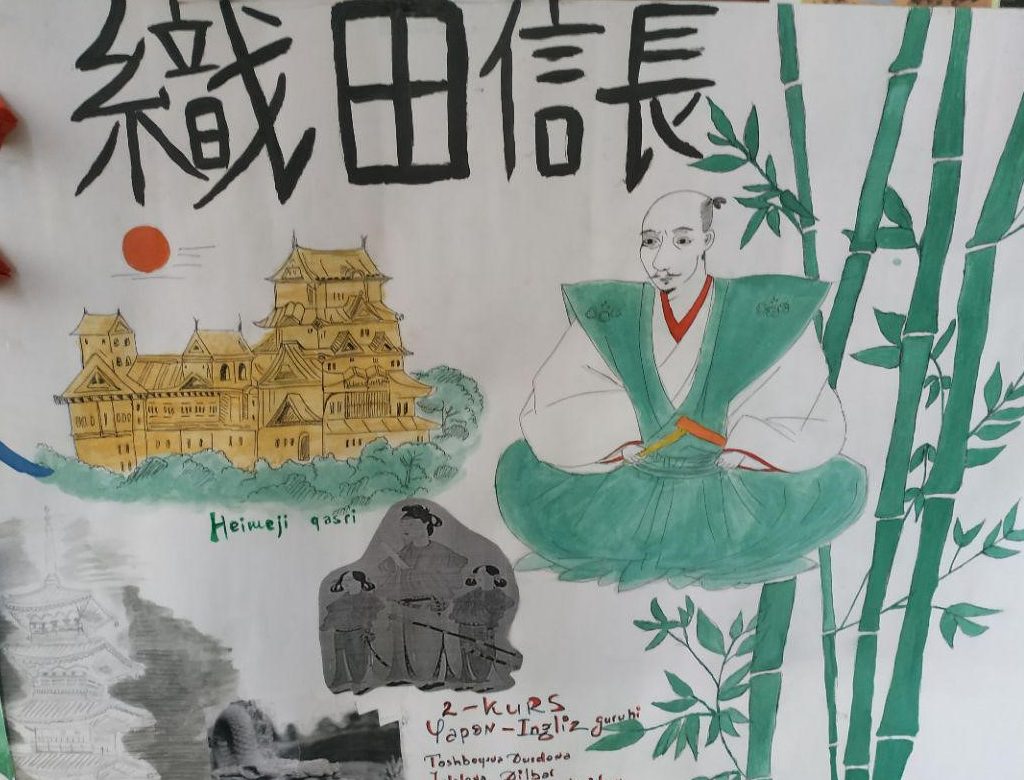 織田信長
Heimeji qasri
2-KURS
Yapon-Ingliz guruhi
Toshboyeva Durdona
Dilbar